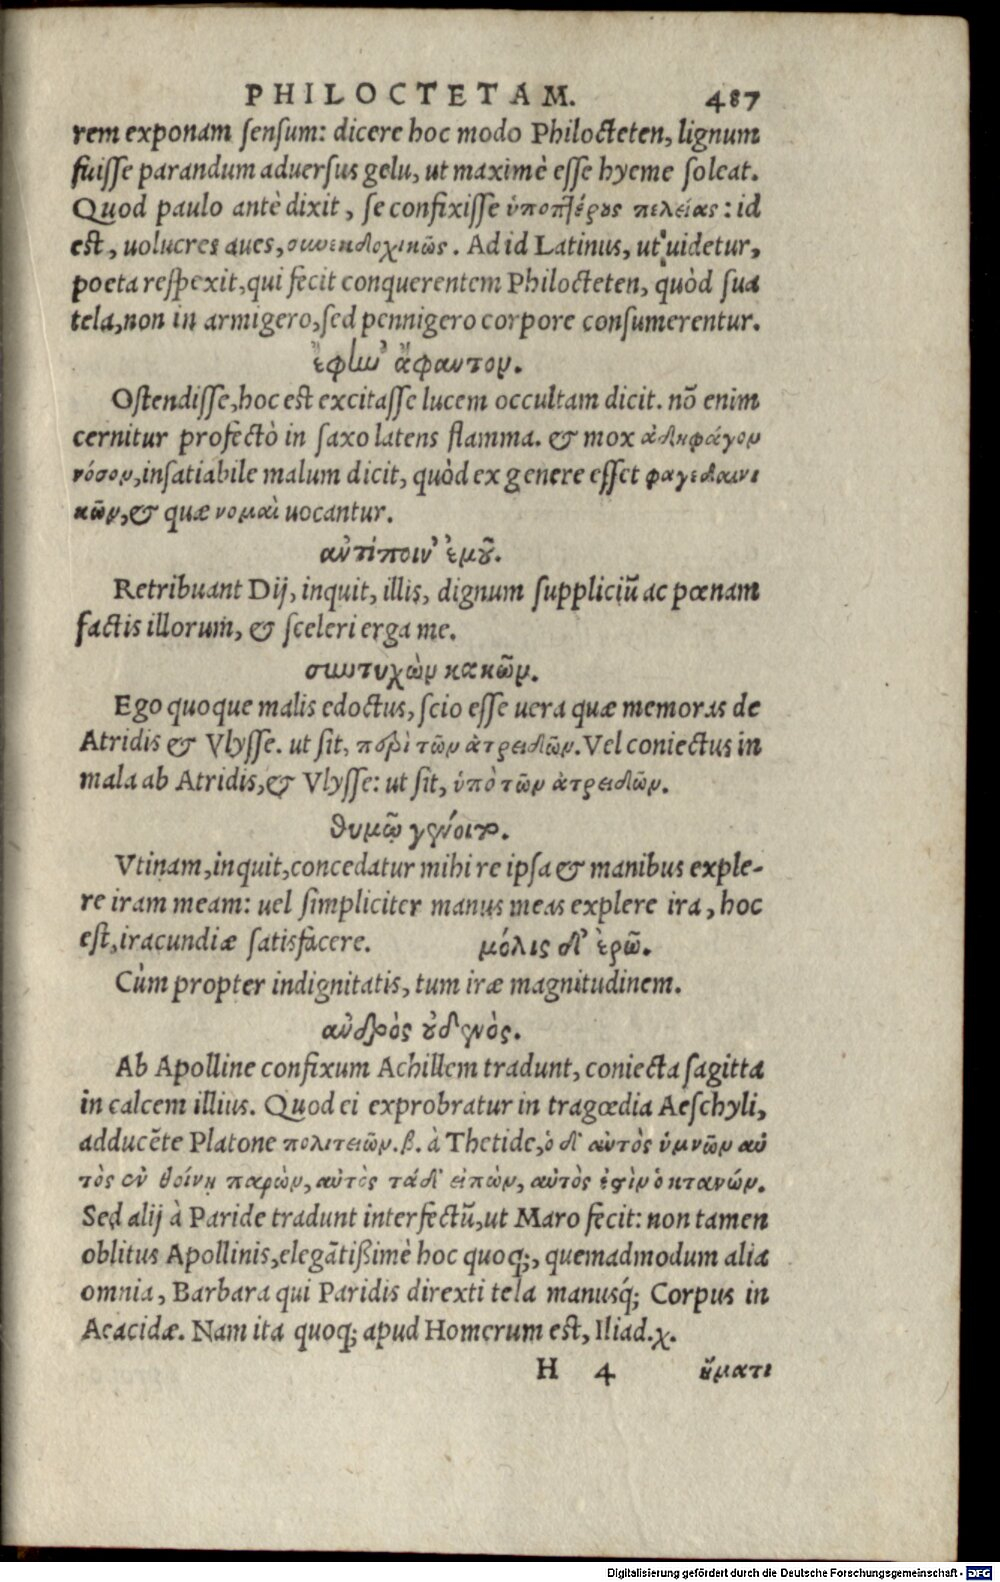 PHILOCTETAM. 487
rem exponam sensum: dicere hoc modo Philocteten, lignum
fuisse parandum aduersus gelu, ut maximè esse hyeme soleat.
Quod paulo antè dixit, se confixisse ὑποπτέρους πελείας: id
est, uolucres aues, συνεκδοχικῶς. Ad id Latinus, ut uidetur,
poeta respexit, qui fecit conquerentem Philocteten, quòd sua
tela, non in armigero, sed pennigero corpore consumerentur.
ἔφην' ἄφαντον.
Ostendisse, hoc est excitasse lucem occultam dicit. nō enim
cernitur profectò in saxo latens flamma. & mox ἀδηφάγον
νόσον, insatiabile malum dicit, quòd ex genere esset φαγεδαινι
κῶν, & quæ νομαὶ uocantur.
αὐτίποιν' ἐμοῦ.
Retribuant Dij, inquit, illis, dignum suppliciū ac pœnam
factis illorum, & sceleri erga me.
συντυχὼν κακῶν.
Ego quoque malis edoctus, scio esse uera quæ memoras de
Atridis & Vlysse. ut sit, περὶ τῶν ἀτρειδῶν. Vel coniectus in
mala ab Atridis, & Vlysse: ut sit, ὑπὸ τῶν ἀτρειδῶν.
θυμῷ γένοιτο.
Vtinam, inquit, concedatur mihi re ipsa & manibus exple-
re iram meam: uel simpliciter manus meas explere ira, hoc
est, iracundiæ satisfacere. μόλις δ' ἐρῶ.
Cùm propter indignitatis, tum iræ magnitudinem.
ἀνδρὸς οὐδενὸς.
Ab Apolline confixum Achillem tradunt, coniecta sagitta
in calcem illius. Quod ei exprobratur in tragœdia Aeschyli,
adducēte Platone πολιτειῶν. β. à Thetide, ὁ δ' αὐτὸς ὑμνῶν αὐ
τὸς ἐν θοίνῃ παρὼν, αὐτὸς τάδ' εἰπὼν, αὐτὸς ἐστὶν ὁ κτανών.
Sed alij à Paride tradunt interfectū, ut Maro fecit: non tamen
oblitus Apollinis, elegātißimè hoc quoq;, quemadmodum alia
omnia, Barbara qui Paridis direxti tela manusq́; Corpus in
Aeacidæ. Nam ita quoq; apud Homerum est, Iliad. χ.
H 4 ἤματι
Digitalisierung gefördert durch die Deutsche Forschungsgemeinschaft - DFG